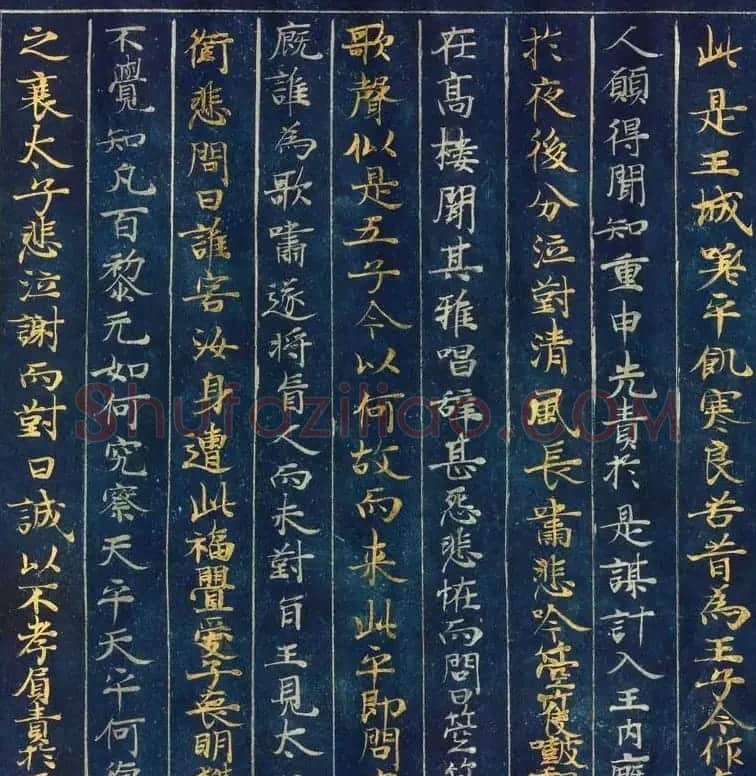 此是王城嗟乎飢寒良苦昔為王子今作
人願得聞知重申先責於是謀計入王內廄
於夜後分泣對清風長嘯悲吟箜篌
在高楼聞其雅唱辞甚怨悲怪而問曰箜篌
歌聲似是吾子今以何故而来此乎即問
廄誰為歌嘯遂将盲人而来對旨王見太
銜悲問曰誰害汝身遭此禍舋愛子喪明
不覺知凡百黎元如何究察天乎天乎何
之衰太子悲泣謝而對曰誠以不孝負責於
Shufaziliao.COM